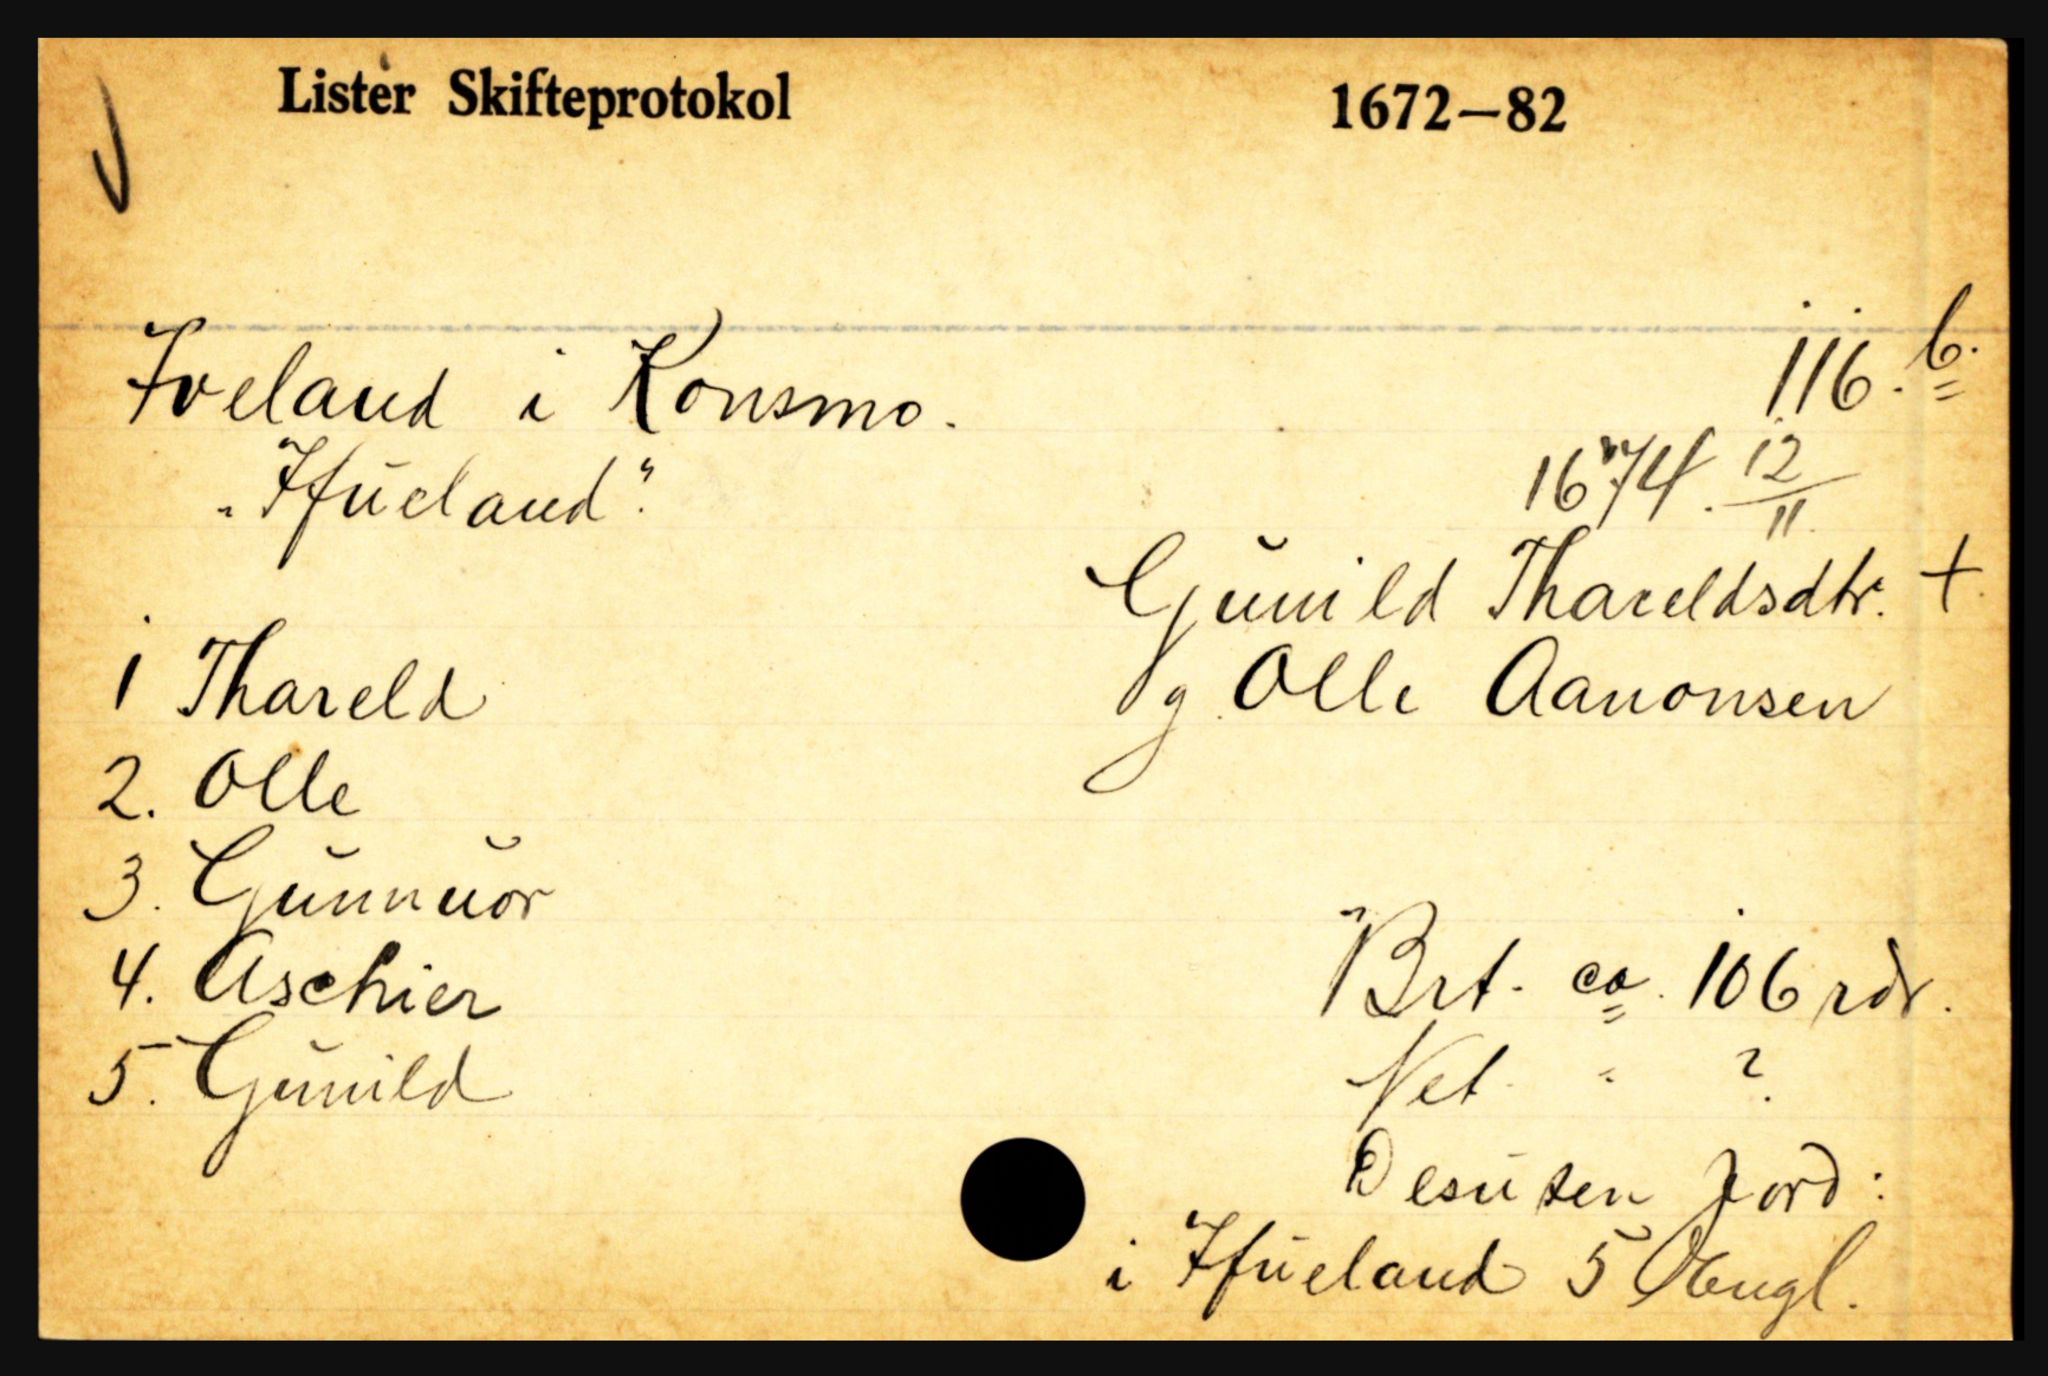 Lister Skifteprotokol 1672—82
Iveland i Konsmo. 116. b.
"Ifŭeland".
1674. 12/11
Gŭnild Thareldsdtr. +
g. Olle Aanonsen
1 Thareld
2. Olle
3. Gŭnnŭor
4. Aschier
5. Gŭnild
Brt. ca. 106 rdr.
Net. " ?
Desŭten Jord:
i Ifŭeland 5 Engl.